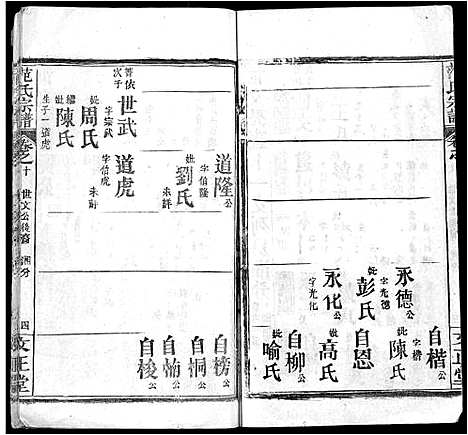 范氏宗譜
永德公
字光德
妣彭氏
永化公
字光化
自楷公
字楷
妣陳氏
自恩
妣高氏
自柳公
妣喻氏
道隆公
字伯隆
妣劉氏
未詳
善依次子
世武
字宗武
妣周氏
繼妣陳氏
生子一道虎
道虎
字伯虎
未詳
自榜公
自桐公
自楠公
自梭公
范氏宗譜
卷之十
世文公後裔
四
文正堂